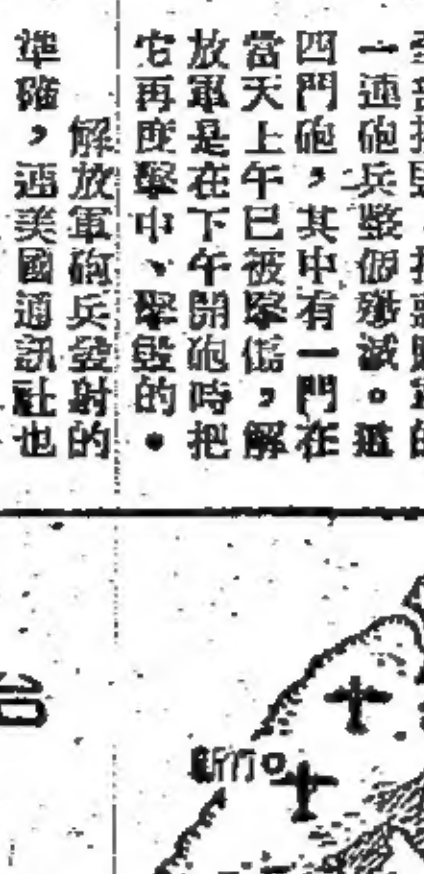 一連砲兵整個殲滅。這
四門砲，其中有一門在
當天上午已被擊傷，解
放軍是在下午開砲時把
它再度擊中、擊毀的。
解放軍砲兵發射的
準確，連美國通訊社也
新竹